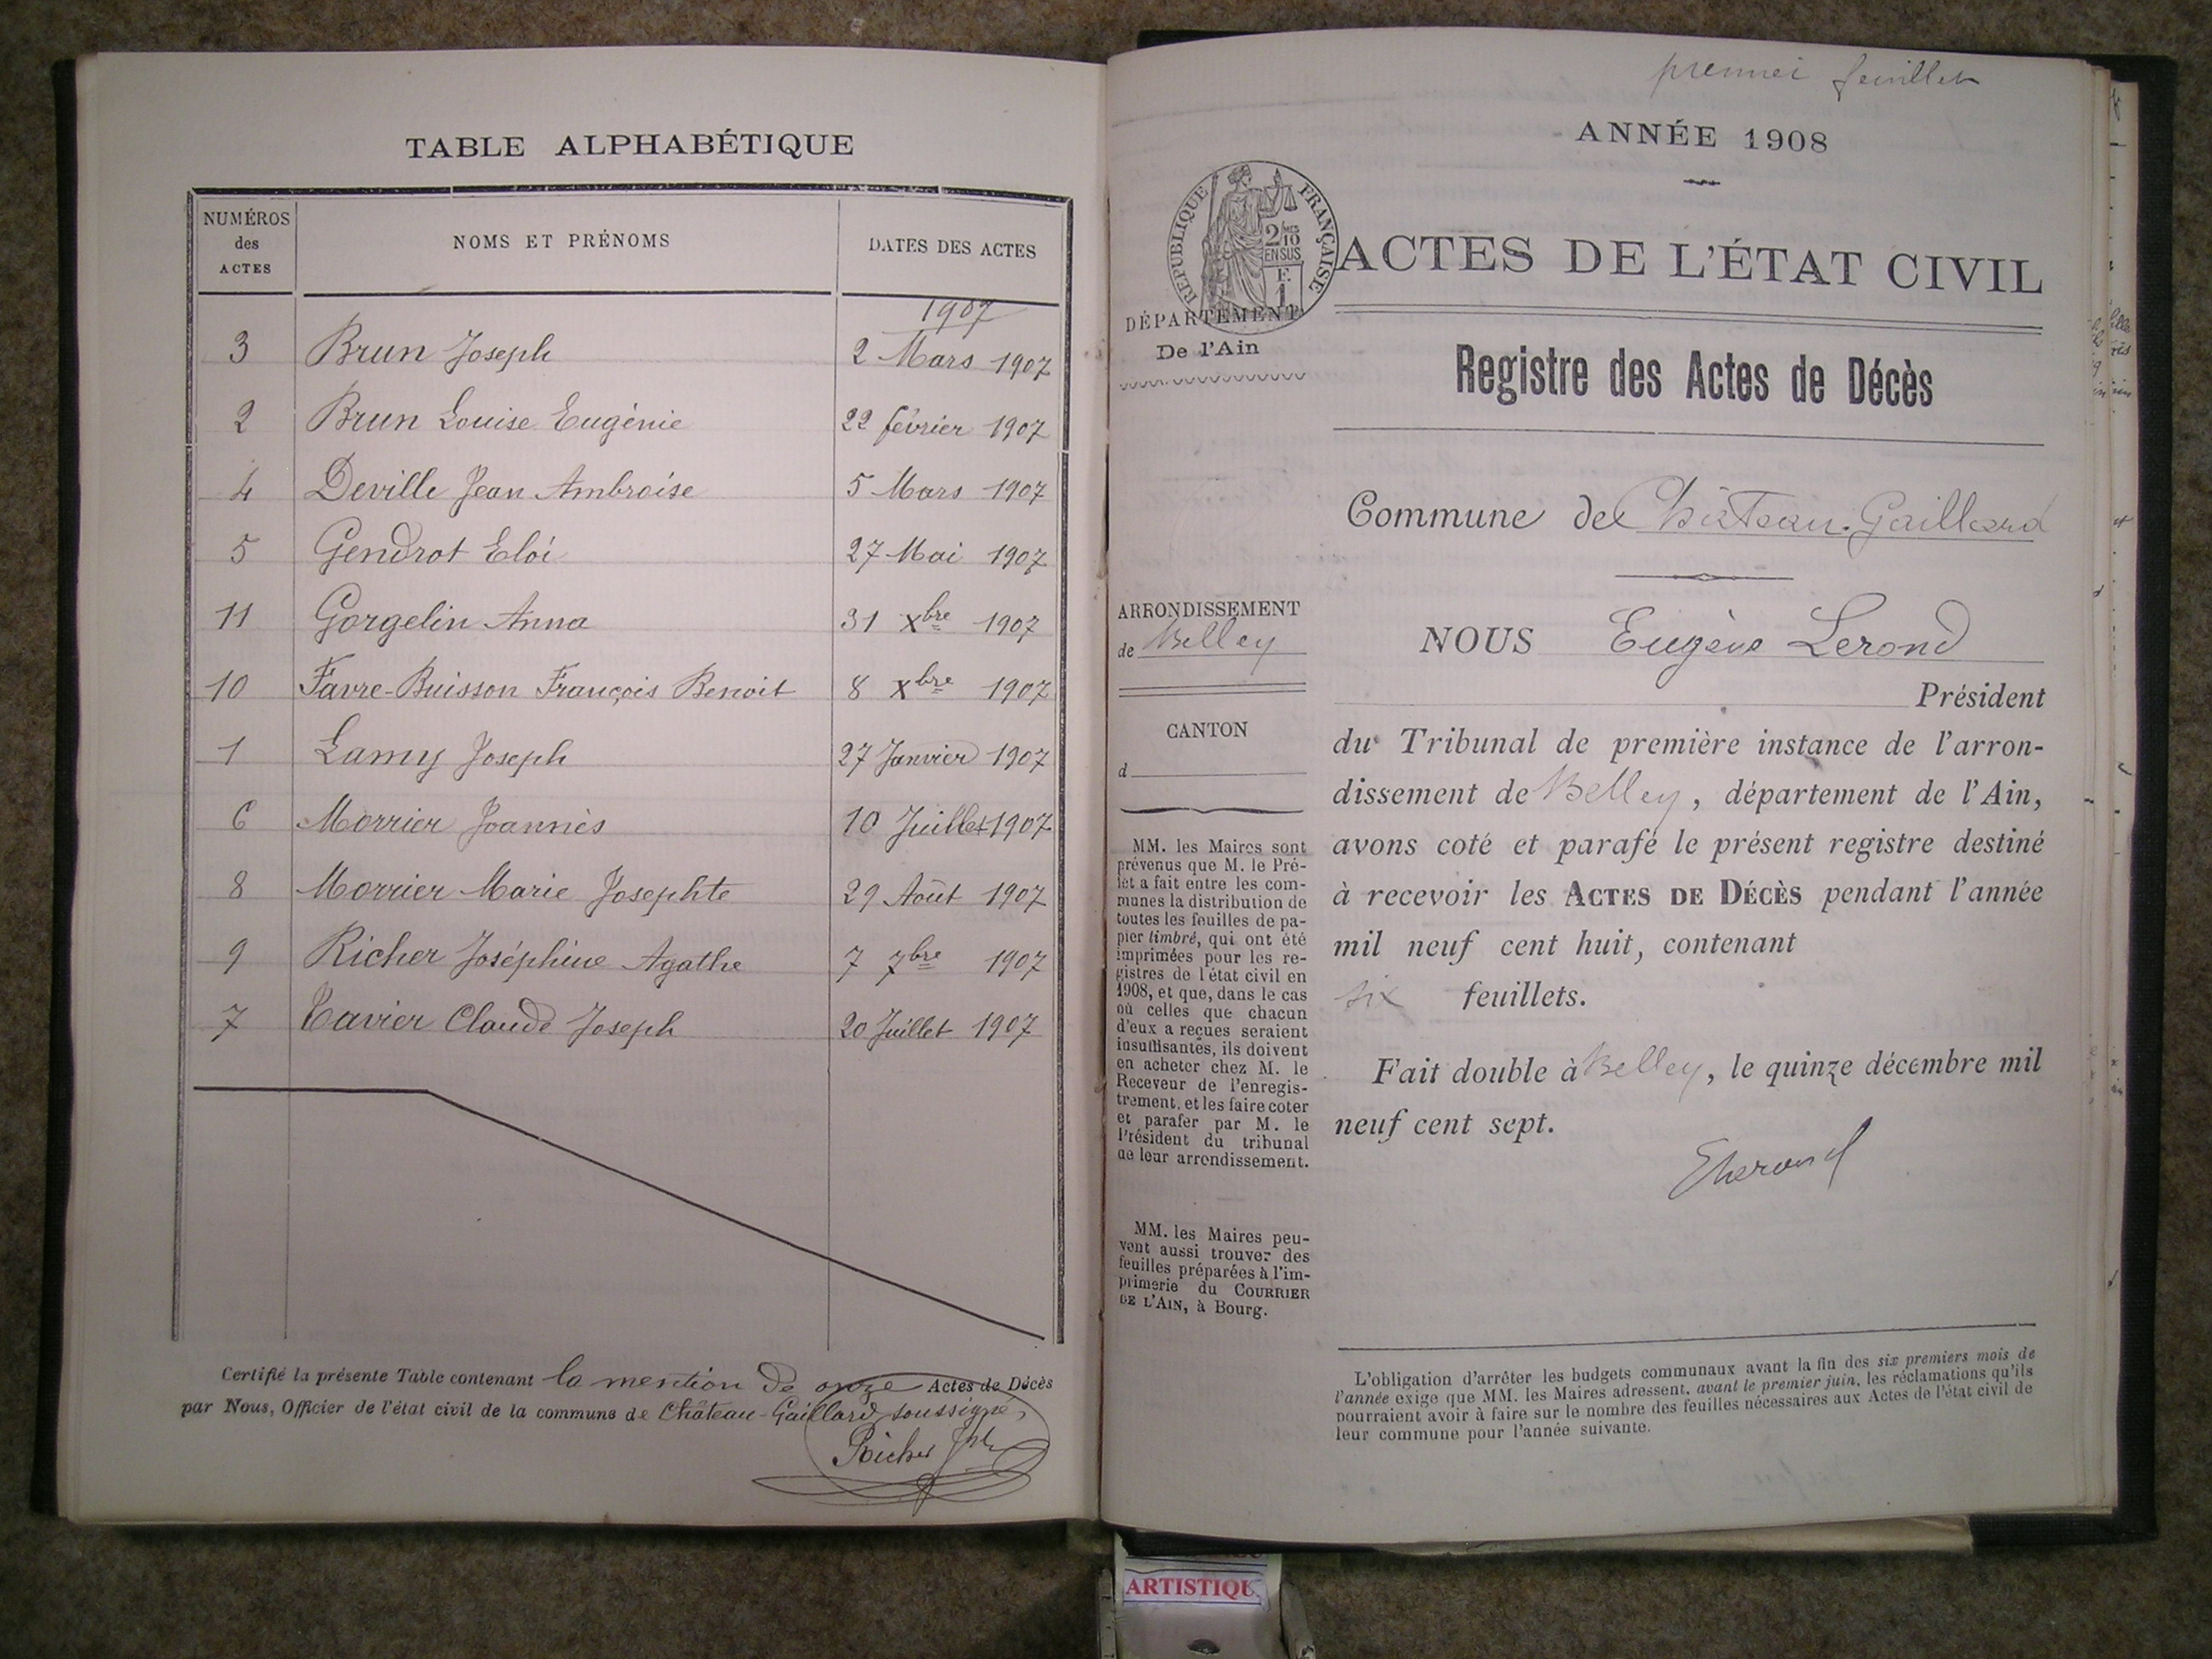 TABLE ALPHABÉTIQUE
NUMÉROS des ACTES
NOMS ET PRÉNOMS
DATES DES ACTES
1907
3 Brun Joseph 2 Mars 1907
2 Brun Louise Eugénie 22 février 1907
4 Deville Jean Ambroise 5 Mars 1907
5 Gendrot Eloi 27 Mai 1907
11 Gorgelin Anna 31 Xbre 1907
10 Favre-Buisson François Benoit 8 Xbre 1907
1 Lamy Joseph 27 Janvier 1907
6 Morrier Joannès 10 Juillet 1907
8 Morrier Marie Josephte 29 Août 1907
9 Richer Joséphine Agathe 7 7bre 1907
7 Tavier Claude Joseph 20 Juillet 1907
Certifié la présente Table contenant la mention de onze Actes de Décès
par Nous, Officier de l'état civil de la commune de Château-Gaillard, soussigné,
Richer Jph
premier feuillet
ANNÉE 1908
RÉPUBLIQUE FRANÇAISE
2/10 EN SUS
F. 1
ACTES DE L'ÉTAT CIVIL
DÉPARTEMENT
De l'Ain
Registre des Actes de Décès
Commune de Château-Gaillard
ARRONDISSEMENT
de Belley
CANTON
d
MM. les Maires sont
prévenus que M. le Pré-
fet a fait entre les com-
munes la distribution de
toutes les feuilles de pa-
pier timbré, qui ont été
imprimées pour les re-
gistres de l'état civil en
1908, et que, dans le cas
où celles que chacun
d'eux a reçues seraient
insuffisantes, ils doivent
en acheter chez M. le
Receveur de l'enregis-
trement, et les faire coter
et parafer par M. le
Président du tribunal
de leur arrondissement.
MM. les Maires peu-
vent aussi trouver des
feuilles préparées à l'im-
primerie du COURRIER
DE L'AIN, à Bourg.
NOUS Eugène Lerond
Président
du Tribunal de première instance de l'arron-
dissement de Belley, département de l'Ain,
avons coté et parafé le présent registre destiné
à recevoir les ACTES DE DÉCÈS pendant l'année
mil neuf cent huit, contenant
six feuillets.
Fait double à Belley, le quinze décembre mil
neuf cent sept.
ELerond
L'obligation d'arrêter les budgets communaux avant la fin des six premiers mois de
l'année exige que MM. les Maires adressent, avant le premier juin, les réclamations qu'ils
pourraient avoir à faire sur le nombre des feuilles nécessaires aux Actes de l'état civil de
leur commune pour l'année suivante.
ARTISTIQU